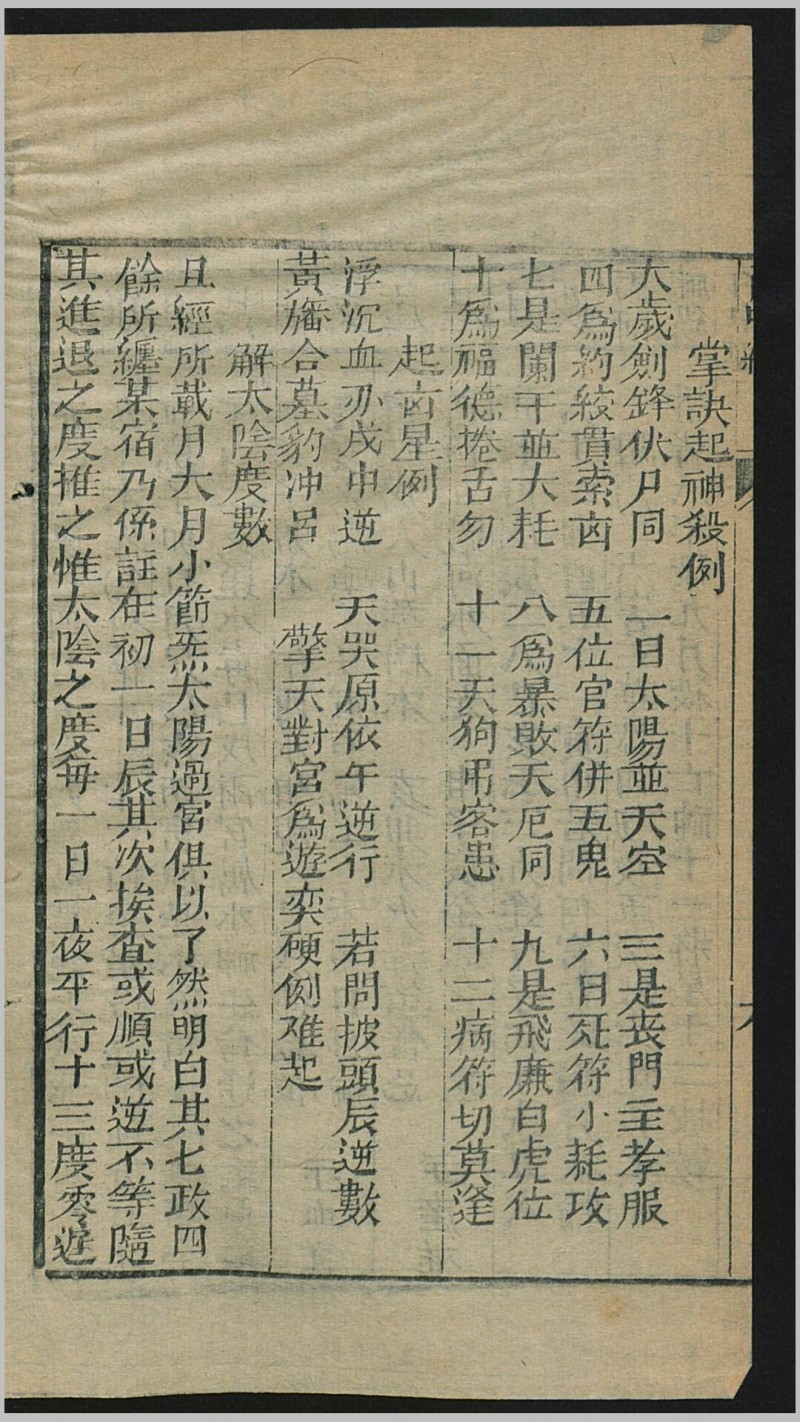 掌訣起神殺例
太歲劍鋒伏尸同 一日太陽並天空 三是丧門主孝服
四爲約絞貫索凶 五位官符併五鬼 六日死符小耗攻
七是闌干並大耗 八爲暴敗天厄同 九是飛廉白虎位
十爲福德捲舌勿 十一天狗弔客患 十二病符切莫逢
起凶星例
浮沉血刃戌中逆 天哭原依午逆行 若問披頭辰逆數
黃旛合墓豹冲呂 擎天對宮爲遊奕 硬例难起
解太陰度數
且經所載月大月小節炁太陽過宮俱以了然明白其七政四
餘所纏某宿乃係註在初一日辰其次挨查或順或逆不等隨
其進退之度推之惟太陰之度每一日一夜平行十三度零遊